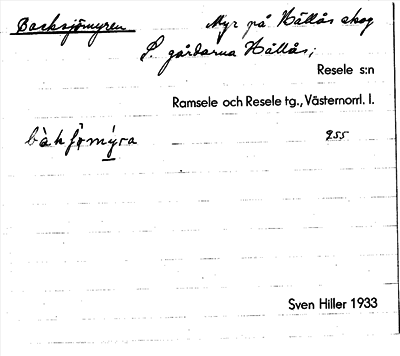 Backsjömyren Myr på Hällås skog
S. gårdarna Hällås;
Resele s:n
Ramsele och Resele tg., Västernorrl. l.
955
Sven Hiller 1933